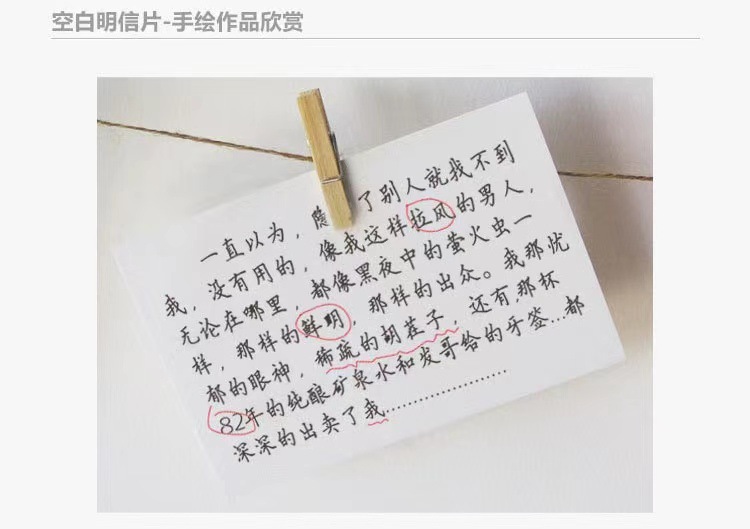 空白明信片-手绘作品欣赏
一直以为，了别人就找不到
我，没有用的，像我这样拉风的男人，
无论在哪里，都像黑夜中的萤火虫一
样，那样的鲜明，那样的出众。我那忧
郁的眼神，稀疏的胡茬子，还有，那杯
82年的纯酿矿泉水和发哥给的牙签...都
深深的出卖了我.....................